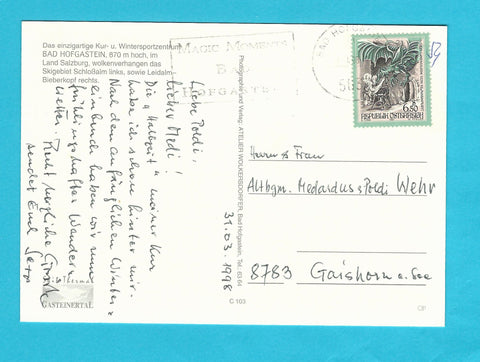 Das einzigartige Kur- u. Wintersportzentrum
BAD HOFGASTEIN, 870 m hoch, im
Land Salzburg, wolkenverhangen das
Skigebiet Schloßalm links, sowie Leidalm-
Bieberkopf rechts.
MAGIC MOMENTS
BAD
HOFGASTEIN
BAD HOFG
6.50
REPUBLIK ÖSTERREICH
Liebe Poldi,
Lieber Medi!
Die "Halbzeit" meiner Kur
habe ich schon hinter mir.
Nach dem anfänglichen Winter-
einbruch haben wir nun
frühlingshaftes Wander-
wetter. Recht herzliche Grüße
sendet Euch
31.03.1998
Photographie und Verlag: ATELIER WOLKERSDORFER, Bad Hofgastein, Tel. 83 64
C 103
Herrn & Frau
Altbgm. Medardus & Poldi Wehr
8783 Gaishorn a. See
GASTEINERTAL